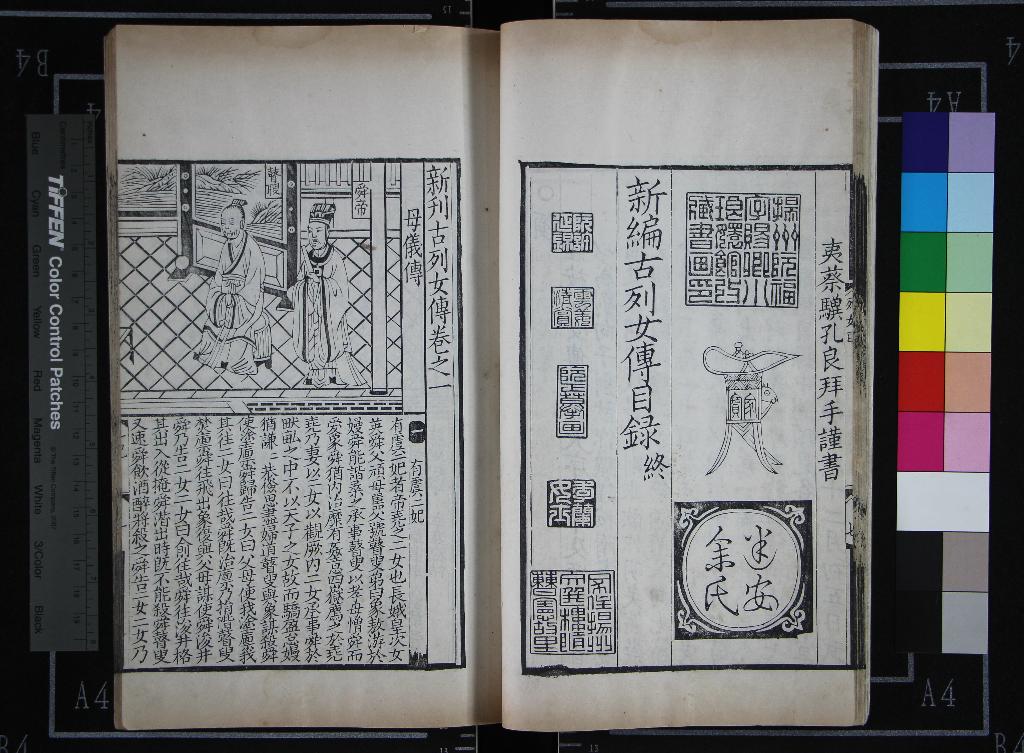 夷蔡驥孔良拜手謹書
揚州阮福
字賜卿小
琅嬛館收
藏書畫印
家寶
建安
余氏
新編古列女傳目錄
終
新刊古列女傳卷之一
母儀傳
舜帝
瞽瞍
一
有虞二妃
有虞二妃者帝堯之二女也長娥皇次女
英舜父頑母嚚父號瞽叟弟曰象敖游於
嫚舜能諧柔之承事瞽叟以孝母憎舜而
愛象舜猶內治靡有姦意四嶽薦之於堯
堯乃妻以二女以觀厥內二女承事舜於
畎畝之中不以天子之女故而驕盈怠嫚
猶謙謙恭儉思盡婦道瞽叟與象謀殺舜
使塗廩舜歸告二女曰父母使我塗廩我
其往二女曰往哉舜既治廩乃捐階瞽叟
焚廩舜往飛出象復與父母謀使舜浚井
舜乃告二女二女曰俞往哉舜往浚井格
其出入從掩舜潛出時既不能殺舜瞽叟
又速舜飲酒醉將殺之舜告二女二女乃
TIFFEN Color Control Patches
© The Tiffen Company, 2007
Centimetres
Blue
Cyan
Green
Yellow
Red
Magenta
White
3/Color
Black
B4
A4
A4
A4